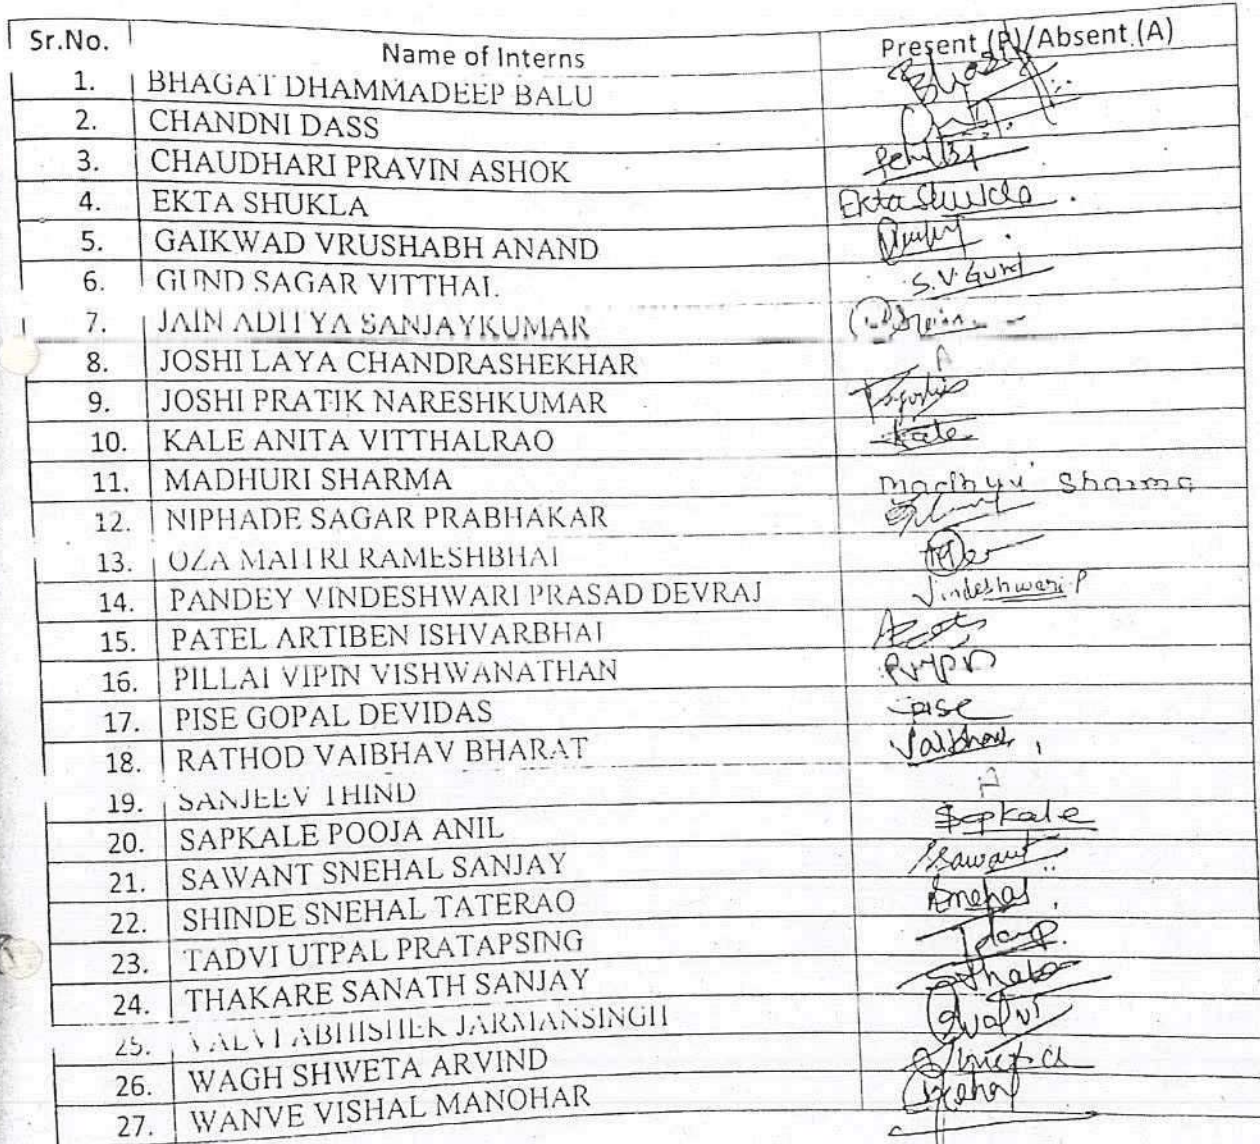 Sr.No. Name of Interns Present (P)/Absent (A)
1. BHAGAT DHAMMADEEP BALU
2. CHANDNI DASS
3. CHAUDHARI PRAVIN ASHOK
4. EKTA SHUKLA Ekta Shukla
5. GAIKWAD VRUSHABH ANAND
6. GUND SAGAR VITTHAL S.V.Gund
7. JAIN ADITYA SANJAYKUMAR
8. JOSHI LAYA CHANDRASHEKHAR A
9. JOSHI PRATIK NARESHKUMAR
10. KALE ANITA VITTHALRAO Kale
11. MADHURI SHARMA Madhuri Sharma
12. NIPHADE SAGAR PRABHAKAR
13. OZA MAITRI RAMESHBHAI
14. PANDEY VINDESHWARI PRASAD DEVRAJ Vindeshwari P
15. PATEL ARTIBEN ISHVARBHAI
16. PILLAI VIPIN VISHWANATHAN
17. PISE GOPAL DEVIDAS Pise
18. RATHOD VAIBHAV BHARAT Vaibhav
19. SANJEEV THIND A
20. SAPKALE POOJA ANIL Sapkale
21. SAWANT SNEHAL SANJAY SSawant
22. SHINDE SNEHAL TATERAO Snehal
23. TADVI UTPAL PRATAPSING
24. THAKARE SANATH SANJAY
25. VALVI ABHISHEK JARMANSINGH
26. WAGH SHWETA ARVIND
27. WANVE VISHAL MANOHAR